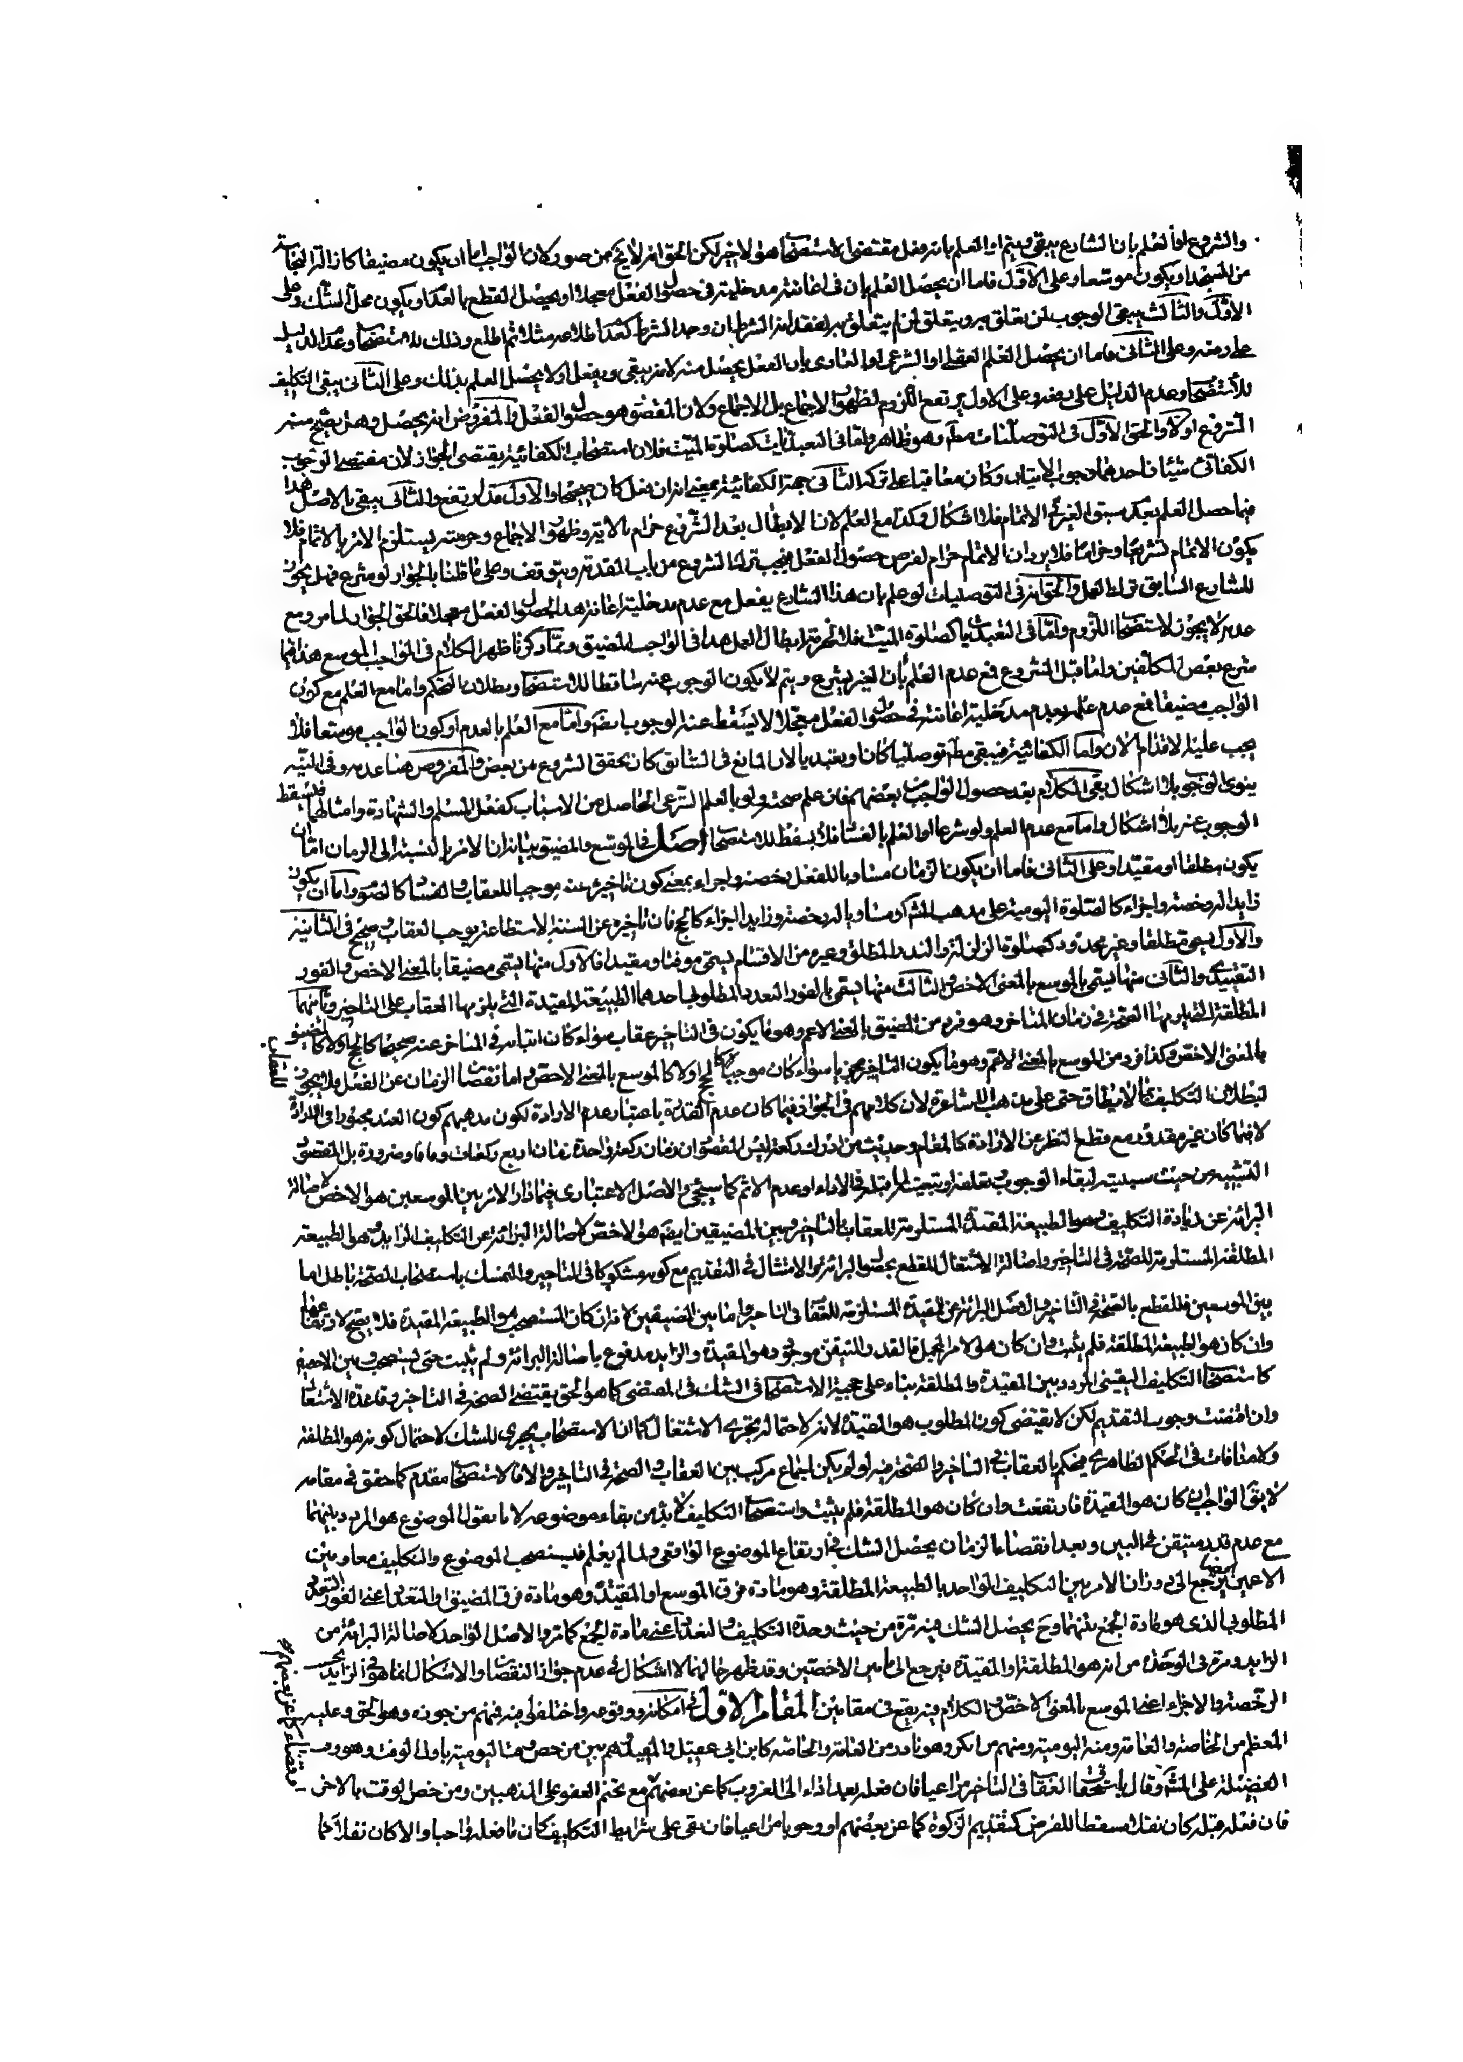 والشروع او العلم بان الشارع يبقى ويتم او العلم بانه فعل مقتضى الاستصحاب هو الاخير لكن الحق انه لا يخ من صور لان الواجب اما ان يكون مضيقا كازالة النجاسة
من المسجد او يكون موسعا وعلى الاول فاما ان يحصل العلم بان في اعانته مدخلية في حصول الفعل معجلا او يحصل القطع بالعدم او يكون محل الشك وعلى
الاول والثالث يبقى الوجوب لمن تعلق به ويتعلق لمن لم يتعلق به لفقد الشرط ان وجد الشرط كعدم اطلاعه مثلا ثم اطلع وذلك للاستصحاب وعدم الدليل
على رفعه وعلى الثاني فاما ان يحصل العلم العقلي او الشرعي او العادي بان الفعل يحصل منه لانه يبقى ويفعل اولا يحصل العلم بذلك وعلى الثاني يبقى التكليف
للاستصحاب وعدم الدليل على رفعه وعلى الاول يرتفع اللزوم لظهور الاجماع بل الاجماع ولان المقصود هو حصول الفعل والمفروض انه يحصل وهل يصح منه
الشروع اولا والحق الاول في التوصليات مطلقا وهو ظاهر واما في التعبديات كصلوة الميت فلان استصحاب الكفائية يقتضي الجواز لان مقتضى الوجوب
الكفائي شيئان احدهما وجوب الاتيان وكان معاقبا على تركه الثاني جهة الكفائية بمعنى انه ان فعل كان صحيحا والاول قد ارتفع والثاني يبقى بالاصل هذا
فيما حصل العلم بعدم سبق الغير في الاتمام فلا اشكال وكذا مع العلم لان الابطال بعد الشروع حرام بالاية وظهور الاجماع وحرمته يستلزم الامر بالاتمام فلا
يكون الاتمام تشريعا وحراما فلا يرد ان الاتمام حرام لفرض حصول الفعل فيجب ترك الشروع من باب المقدمة ويتوقف وعلى ما قلنا بالجواز لو شرع فهل يجوز
للشارع السابق ترك العمل والحق انه في التوصليات لو علم بان هذا الشارع يفعل مع عدم مدخلية اعانة هذا لحصول الفعل معجلا فالحق الجواز لما مر ومع
عدمه لا يجوز لاستصحاب اللزوم واما في التعبديات كصلوة الميت فلا لحرمة ابطال العمل هذا في الواجب المضيق ومما ذكرنا ظهر الكلام في الواجب الموسع هذا فيما
شرع بعض المكلفين واما قبل الشروع فمع عدم العلم بان الغير يشرع ويتم لا يكون الوجوب عنه ساقطا للاستصحاب وبطلان التحكم واما مع العلم مع كون
الواجب مضيقا فمع عدم علمه بعدم مدخلية اعانته في حصول الفعل معجلا لا يسقط عنه الوجوب ايضا واما مع العلم بالعدم او كون الواجب موسعا فلا
يجب عليه الاقدام الان واما الكفائية فيبقى مطلقا توصليا كان او تعبديا لان المانع في السابق كان تحقق الشروع من بعض والمفروض هنا عدمه وفي النية
ينوي الوجوب بلا اشكال بقي الكلام بعد حصول الواجب من بعضهم فان علم صحته ولو بالعلم الشرعي الحاصل من الاسباب كفعل المسلم والشهادة وامثالهما فيسقط
الوجوب عنه بلا اشكال واما مع عدم العلم ولو شرعا او العلم بالفساد فلا يسقط للاستصحاب اصل في الموسع والمضيق بيانه ان الامر بالنسبة الى الزمان اما ان
يكون مطلقا او مقيدا وعلى الثاني فاما ان يكون الزمان مساويا للفعل رخصة واجزاء بمعنى كون تاخيره عنه موجبا للعقاب والفساد كالصوم واما ان يكون
زايدا له رخصة واجزاء كالصلوة اليومية على مذهب المشهور او مساويا له رخصة وزايدا اجزاء كالحج فان تاخيره عن السنة الاستطاعة يوجب العقاب وصح في الثانية
والاول يسمى مطلقا وغير محدود كصلوة الزلزلة والنذر المطلق وغيره من الاقسام يسمى موقتا ومقيدا فالاول منها يسمى مضيقا بالمعنى الاخص والفور
التقييدي والثاني منها يسمى بالموسع بالمعنى الاخص والثالث منها يسمى بالفور التعدد المطلوب احدهما الطبيعة المقيدة التي يلزمها العقاب على التاخير وثانيهما
المطلقة التي يلزمها الصحة في زمان المتاخر وهو فرد من المضيق بالمعنى الاعم وهو ما يكون في التاخير عقاب سواء كان اتيانه في المتاخر عنه صحيحا كالحج اولا كالمضيق
بالمعنى الاخص وكذا فرد من الموسع بالمعنى الاعم وهو ما يكون التاخير مجزيا سواء كان موجبا للعقاب كالحج اولا كالموسع بالمعنى الاخص واما نقصان الزمان عن الفعل فلا يجوز
لبطلان التكليف بما لا يطاق حتى على مذهب الاشاعرة لان كلامهم في الجواز فيما كان عدم القدرة باعتبار عدم الارادة لكون مذهبهم كون العبد مجبورا في الارادة
لا فيما كان غير مقدور مع قطع النظر عن الارادة كالمقام وحديث من ادرك ركعة ليس المقصود ان زمان ركعة واحدة زمان اربع ركعات ضرورة بل المقصود
التشبيه من حيث سببيته لبقاء الوجوب الاداء او عدم الاثم كما سيجيء والاصل الاعتباري فيما دار الامر بين الموسعين هو الاخص لاصالة
البرائة عن زيادة التكليف وهو الطبيعة المقيدة المستلزمة للعقاب بالتاخير وبين المضيقين ايضا هو الاخص لاصالة البرائة عن التكليف الزايد وهو الطبيعة
المطلقة المستلزمة للصحة في التاخير واصالة الاشتغال للقطع بحصول البرائة والامتثال في التقديم مع كونه مشكوكا في التاخير والتمسك باستصحاب الصحة باطل اما
بين الموسعين فللقطع بالصحة في التاخير والاصل البرائة عن المقيدة المستلزمة للعقاب في التاخير واما بين المضيقين فلانه ان كان المستصحب هو الطبيعة المقيدة فلا يصح لارتفاعها
وان كان هو الطبيعة المطلقة فلم يثبت وان كان هو الامر المجمل فالقدر المتيقن موجود هو المقيدة والزايد مدفوع باصالة البرائة ولم يثبت حتى يستصحب وبين الاخصين
كاستصحاب التكليف اليقيني المردد بين المقيدة والمطلقة بناء على حجية الاستصحاب في الشك في المقتضي كما هو الحق يقتضي الصحة في التاخير وقاعدة الاشتغال
وان اقتضت وجوب التقديم لكن لا يقتضي كون المطلوب هو المقيدة لانه لاحتماله يجري الاشتغال كما ان الاستصحاب يجري للشك لاحتمال كونه هو المطلقة
ولا منافات في الحكم الظاهري فيحكم بالعقاب في التاخير والصحة فيه لو لم يكن اجماع مركب بين العقاب والصحة في التاخير والا فالاستصحاب مقدم كما حقق في مقامه
لا يقال الواجب ان كان هو المقيدة فارتفعت وان كان هو المطلقة فلم يثبت واستصحاب التكليف لا بد من بقاء موضوعه لانا نقول الموضوع هو المردد بينهما
مع عدم قدر متيقن في البين وبعد انقضاء الزمان يحصل الشك في ارتفاع الموضوع الواقعي ولما لم يعلم فيستصحب الموضوع والتكليف معا وبين
الاعمين يرجع الى دوران الامر بين التكليف الواحد بالطبيعة المطلقة وهو مادة فرق الموسع او المقيدة وهو مادة فرق المضيق او المتعدد اعني الفور التعدد
المطلوبي الذي هو مادة الجمع بينهما وح يحصل الشك فيه تارة من حيث وحدة التكليف والتعدد اعني مادة الجمع كما مر والاصل الواحد لاصالة البرائة من
الزايد ومرة في الوحدة من انه هو المطلقة او المقيدة فيرجع الى ما بين الاخصين وقد ظهر حالهما لا اشكال في عدم جواز النقصان والاشكال انما هو في الزايد بحسب
الرخصة والاجزاء اعني الموسع بالمعنى الاخص والكلام فيه يقع في مقامين المقام الاول في امكانه ووقوعه واختلف فيه فمنهم من جوزه وهو الحق وعليه
المعظم من الخاصة والعامة ومنه اليومية ومنهم من انكر وهو نادر من العامة والخاصة كابن ابي عقيل والمفيد فمنهم من خص وقت اليومية باول الوقت وهو وقت
الفضيلة على المشهور وقال باستحقاق العقاب في التاخير مراعيا فان فعله بعد اداء الى الغروب كما عن بعضهم مع تحتم العفو على المذهبين ومن خص الوقت بالاخر
فان فعله قبله كان نفلا مسقطا للفرض كتقديم الزكوة كما عن بعضهم او وجوبا مراعيا فان بقي على شرايط التكليف كان ما فعله واجبا والا كان نفلا كما
او قضاء كما عن بعضهم